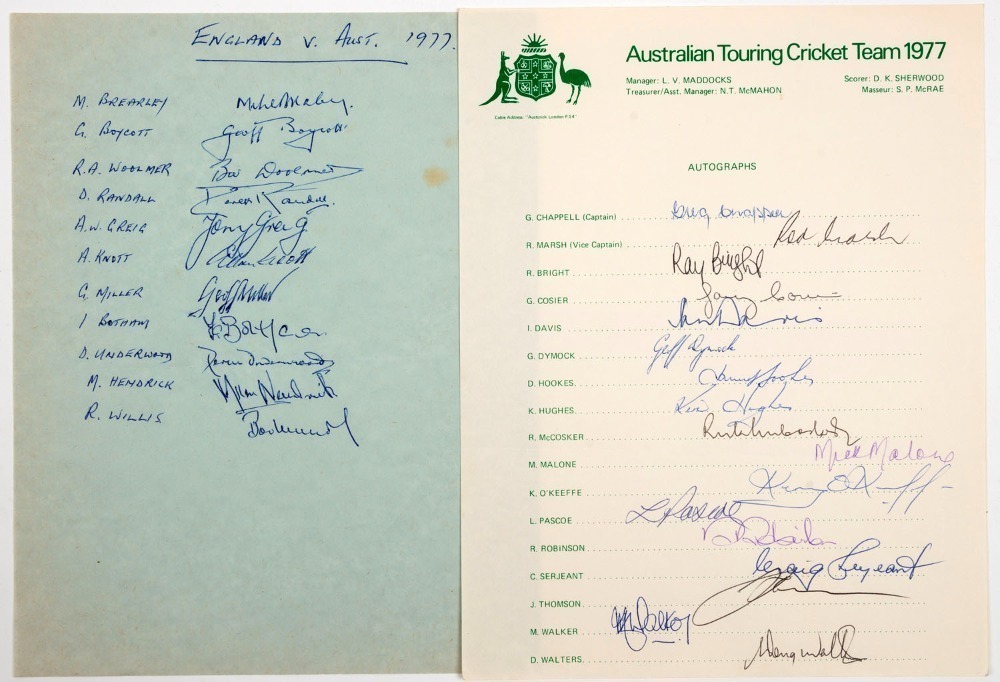 ENGLAND V. AUST. 1977.
M. BREARLEY Mike Brearley.
G. BOYCOTT Geoff Boycott
R.A. WOOLMER Bob Woolmer
D. RANDALL Derek Randall.
A.W. GREIG Tony Greig
A. KNOTT Alan Knott
G. MILLER Geoff Miller
I BOTHAM
D. UNDERWOOD Derek Underwood
M. HENDRICK Mike Hendrick
R. WILLIS Bob Willis
Australian Touring Cricket Team 1977
Manager: L. V. MADDOCKS Scorer: D. K. SHERWOOD
Treasurer/Asst. Manager: N.T. McMAHON Masseur: S. P. McRAE
Cable Address: "Austcrick London P.S4"
AUTOGRAPHS
G. CHAPPELL (Captain) Greg Chappell
R. MARSH (Vice Captain) Rod Marsh
R. BRIGHT Ray Bright
G. COSIER Gary Cosier
I. DAVIS Ian Davis
G. DYMOCK Geoff Dymock
D. HOOKES David Hookes
K. HUGHES Kim Hughes
R. McCOSKER
M. MALONE Mick Malone
K. O'KEEFFE Kerry O'Keeffe
L. PASCOE L Pascoe
R. ROBINSON
C. SERJEANT Craig Serjeant
J. THOMSON
M. WALKER M Walker
D. WALTERS Doug Walters